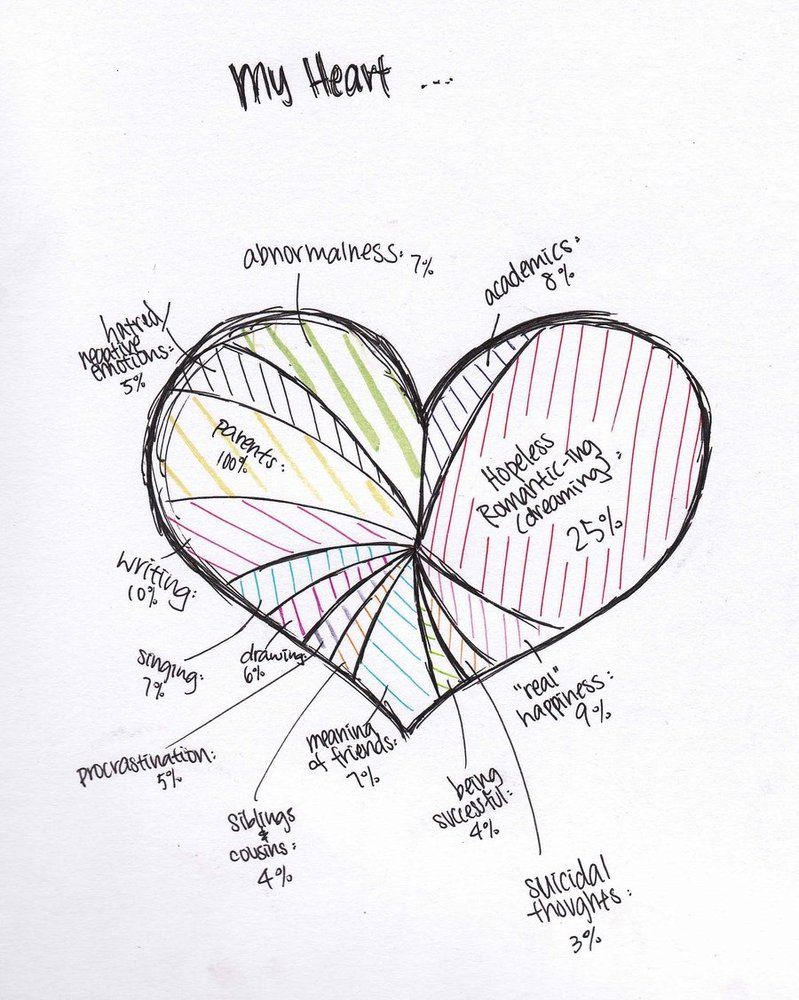 My Heart ...
abnormalness: 7%
academics:
8%
hatred/
negative
emotions:
5%
parents:
100%
Hopeless
Romantic-ing
(dreaming):
25%
writing:
10%
singing:
7%
drawing:
6%
"real"
happiness:
9%
procrastination:
5%
meaning
of friends:
7%
being
successful:
4%
siblings
&
cousins:
4%
suicidal
thoughts:
3%